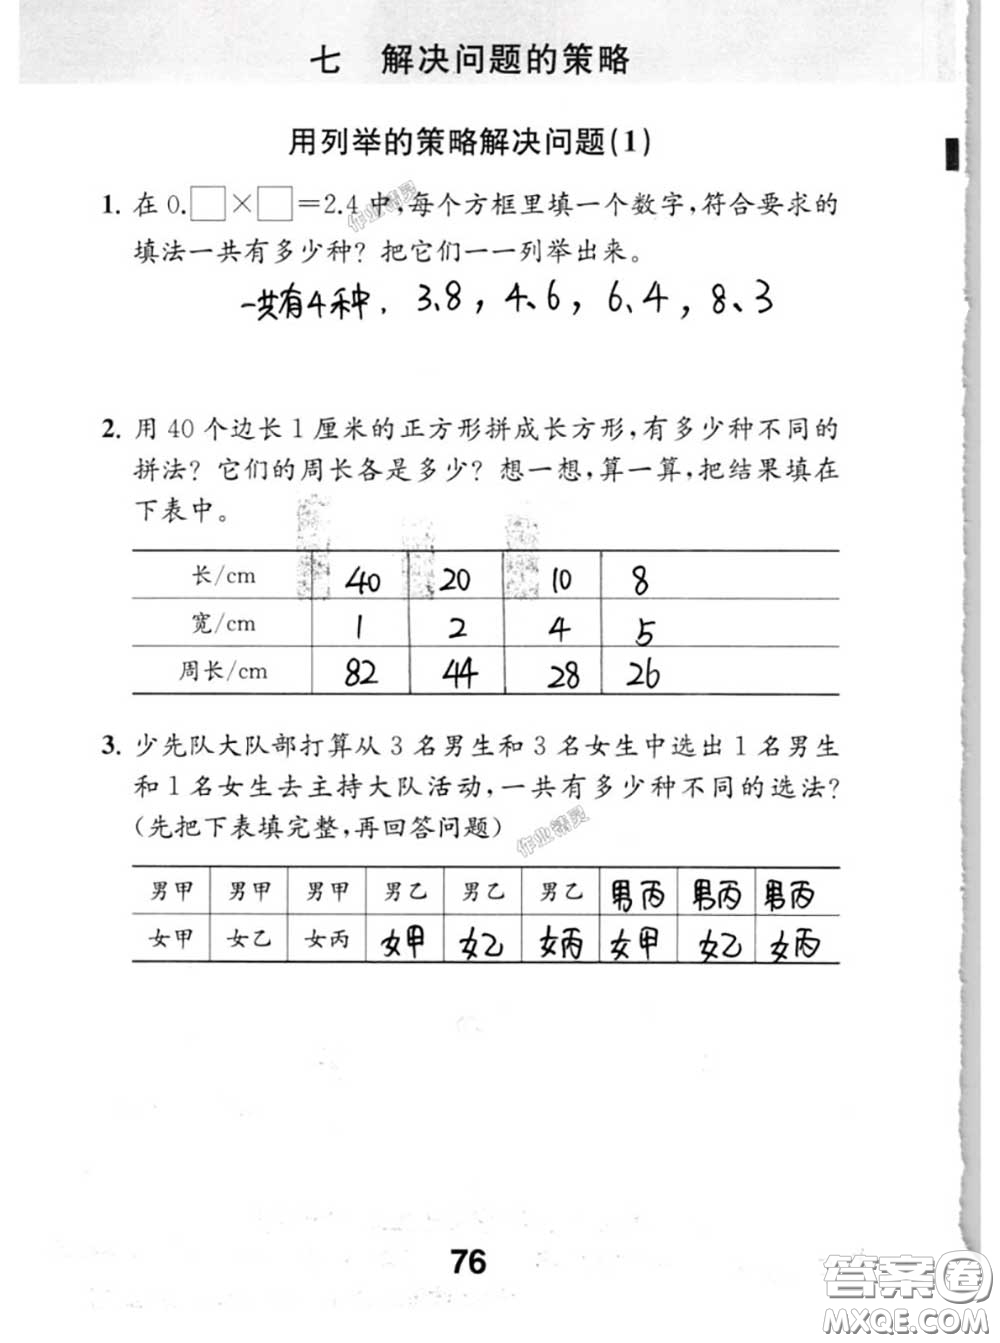 七 解决问题的策略
用列举的策略解决问题(1)
1. 在 0.□×□=2.4 中,每个方框里填一个数字,符合要求的
填法一共有多少种? 把它们一一列举出来。
一共有4种, 3、8, 4、6, 6、4, 8、3
2. 用 40 个边长 1 厘米的正方形拼成长方形,有多少种不同的
拼法? 它们的周长各是多少? 想一想,算一算,把结果填在
下表中。
长/cm 40 20 10 8
宽/cm 1 2 4 5
周长/cm 82 44 28 26
3. 少先队大队部打算从 3 名男生和 3 名女生中选出 1 名男生
和 1 名女生去主持大队活动,一共有多少种不同的选法?
(先把下表填完整,再回答问题)
男甲 男甲 男甲 男乙 男乙 男乙 男丙 男丙 男丙
女甲 女乙 女丙 女甲 女乙 女丙 女甲 女乙 女丙
76
作业精灵
作业精灵
答案卷
MXQE.COM